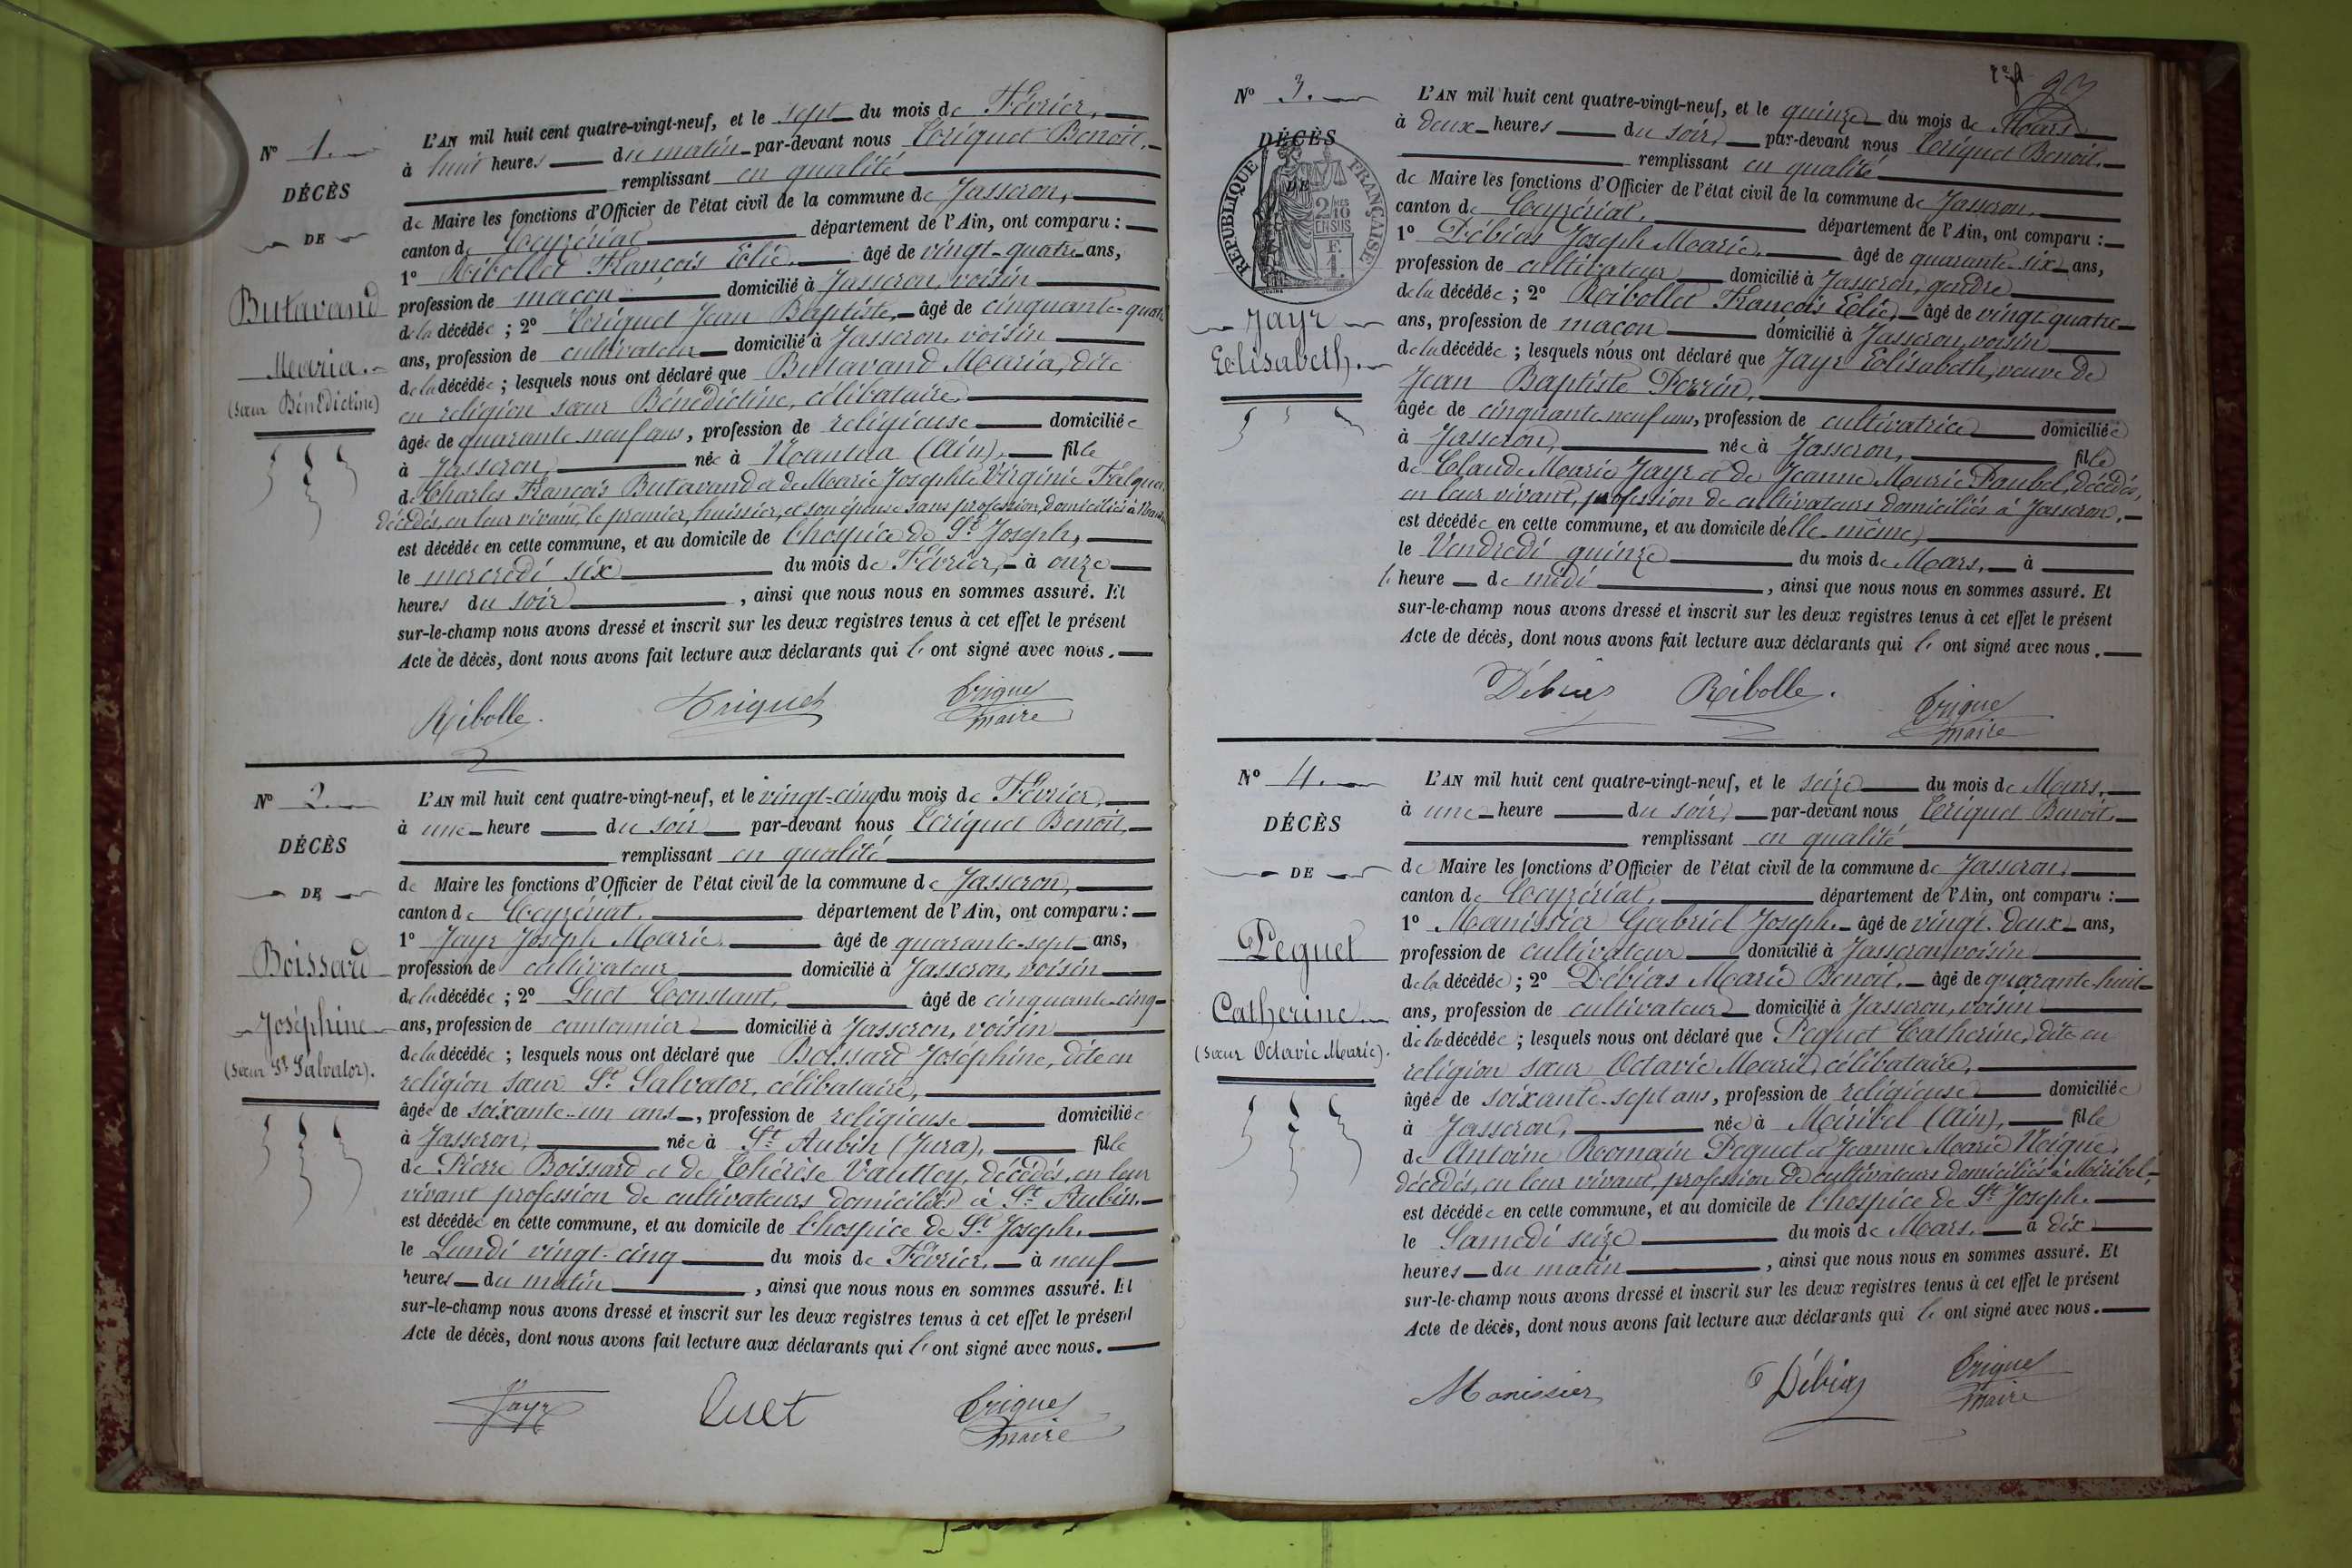 N° 1.
DÉCÈS
DE
Butavand
Maria.
(sœur Bénédictine)
L'AN mil huit cent quatre-vingt-neuf, et le sept du mois de Février,
à huit heures du matin par-devant nous Triquet Benoit,
remplissant en qualité
de Maire les fonctions d'Officier de l'état civil de la commune de Jasseron,
canton de Ceyzériat département de l'Ain, ont comparu :
1° Ribollet François Elie âgé de vingt-quatre ans,
profession de maçon domicilié à Jasseron, voisin
de la décédée ; 2° Triquet Jean Baptiste, âgé de cinquante-quatre
ans, profession de cultivateur domicilié à Jasseron, voisin
de la décédée ; lesquels nous ont déclaré que Butavand Maria, dite
en religion sœur Bénédictine, célibataire,
âgée de quarante neuf ans, profession de religieuse domiciliée
à Jasseron, née à Nantua (Ain), fille
de Charles François Butavand et de Marie Josephte Virginie
décédés, en leur vivant, le premier, huissier, et son épouse sans profession, domiciliés à
est décédée en cette commune, et au domicile de l'hospice de St Joseph,
le mercredi six du mois de Février, à onze
heures du soir , ainsi que nous nous en sommes assuré. Et
sur-le-champ nous avons dressé et inscrit sur les deux registres tenus à cet effet le présent
Acte de décès, dont nous avons fait lecture aux déclarants qui l' ont signé avec nous.
Ribolle. Triquet Triquet
maire
N° 2.
DÉCÈS
DE
Boissard
Joséphine
(sœur St Salvator).
L'AN mil huit cent quatre-vingt-neuf, et le vingt-cinq du mois de Février,
à une heure du soir par-devant nous Triquet Benoit,
remplissant en qualité
de Maire les fonctions d'Officier de l'état civil de la commune de Jasseron,
canton de Ceyzériat, département de l'Ain, ont comparu :
1° Jayr Joseph Marie. âgé de quarante-sept ans,
profession de cultivateur domicilié à Jasseron, voisin
de la décédée ; 2° Luet Constant, âgé de cinquante-cinq
ans, profession de cantonnier domicilié à Jasseron, voisin
de la décédée ; lesquels nous ont déclaré que Boissard Joséphine, dite en
religion sœur St Salvator, célibataire,
âgée de soixante-un ans, profession de religieuse domiciliée
à Jasseron, née à St Aubin (Jura), fille
de Pierre Boissard et de Thérèse décédés, en leur
vivant profession de cultivateurs domiciliés à St Aubin,
est décédée en cette commune, et au domicile de l'hospice de St Joseph.
le Lundi vingt-cinq du mois de Février, à neuf
heures du matin , ainsi que nous nous en sommes assuré. Et
sur-le-champ nous avons dressé et inscrit sur les deux registres tenus à cet effet le présent
Acte de décès, dont nous avons fait lecture aux déclarants qui l' ont signé avec nous.
Jayr Luet Triquet
maire
23
N° 3.
DÉCÈS
DE
RÉPUBLIQUE FRANÇAISE
2/10 EN SUS
Jayr
Elisabeth.
L'AN mil huit cent quatre-vingt-neuf, et le quinze du mois de Mars
à deux heures du soir, par-devant nous Triquet Benoit,
remplissant en qualité
de Maire les fonctions d'Officier de l'état civil de la commune de Jasseron,
canton de Ceyzériat, département de l'Ain, ont comparu :
1° Débias Joseph Marie, âgé de quarante-six ans,
profession de cultivateur domicilié à Jasseron, gendre
de la décédée ; 2° Ribollet François Elie, âgé de vingt-quatre
ans, profession de maçon domicilié à Jasseron, voisin
de la décédée ; lesquels nous ont déclaré que Jayr Elisabeth, veuve de
Jean Baptiste Perrin,
âgée de cinquante neuf ans, profession de cultivatrice domiciliée
à Jasseron, née à Jasseron, fille
de Claude Marie Jayr et de Jeanne Marie Paubel, décédés,
en leur vivant, profession de cultivateurs domiciliés à Jasseron,
est décédée en cette commune, et au domicile d'elle-même,
le Vendredi quinze du mois de Mars, à
l' heure de midi , ainsi que nous nous en sommes assuré. Et
sur-le-champ nous avons dressé et inscrit sur les deux registres tenus à cet effet le présent
Acte de décès, dont nous avons fait lecture aux déclarants qui l' ont signé avec nous.
Débias Ribolle. Triquet
maire
N° 4.
DÉCÈS
DE
Pequet
Catherine
(sœur Octavie Marie).
L'AN mil huit cent quatre-vingt-neuf, et le seize du mois de Mars,
à une heure du soir, par-devant nous Triquet Benoit,
remplissant en qualité
de Maire les fonctions d'Officier de l'état civil de la commune de Jasseron,
canton de Ceyzériat, département de l'Ain, ont comparu :
1° Manissier Gabriel Joseph, âgé de vingt-deux ans,
profession de cultivateur domicilié à Jasseron, voisin
de la décédée ; 2° Débias Marie Benoit, âgé de quarante-huit
ans, profession de cultivateur domicilié à Jasseron, voisin
de la décédée ; lesquels nous ont déclaré que Pequet Catherine, dite en
religion sœur Octavie Marie, célibataire,
âgée de soixante-sept ans, profession de religieuse domiciliée
à Jasseron, née à Miribel (Ain), fille
de Antoine Romain Pequet et Jeanne Marie
décédés, en leur vivant, profession de cultivateurs domiciliés à Miribel,
est décédée en cette commune, et au domicile de l'hospice de St Joseph.
le Samedi seize du mois de Mars, à dix
heures du matin , ainsi que nous nous en sommes assuré. Et
sur-le-champ nous avons dressé et inscrit sur les deux registres tenus à cet effet le présent
Acte de décès, dont nous avons fait lecture aux déclarants qui l' ont signé avec nous.
Manissier Débias Triquet
maire